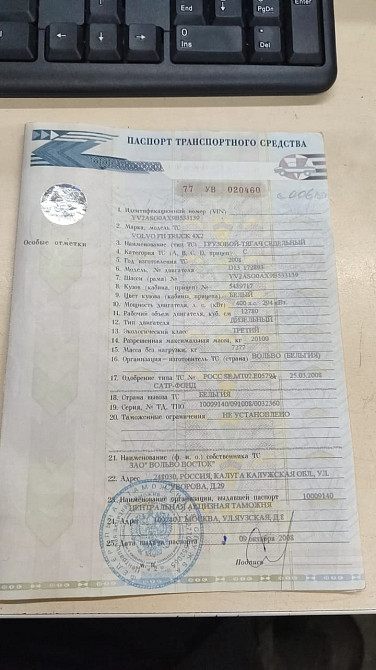 End
PgDn
Enter
0
Ins
Del
ПАСПОРТ ТРАНСПОРТНОГО СРЕДСТВА
77 УВ 020460
Особые отметки
1. Идентификационный номер (VIN)
2. Марка, модель ТС
VOLVO FH TRUCK 4X2
3. Наименование (тип ТС) ГРУЗОВОЙ ТЯГАЧ СЕДЕЛЬНЫЙ
4. Категория ТС (А, В, С, D, прицеп) C
5. Год изготовления ТС 2008
6. Модель, № двигателя D13
7. Шасси (рама) №
8. Кузов (кабина, прицеп) №
9. Цвет кузова (кабины, прицепа) БЕЛЫЙ
10. Мощность двигателя, л. с. (кВт) 400 л.с. 294 кВт
11. Рабочий объем двигателя, куб. см 12780
12. Тип двигателя ДИЗЕЛЬНЫЙ
13. Экологический класс ТРЕТИЙ
14. Разрешенная максимальная масса, кг 20100
15. Масса без нагрузки, кг 7277
16. Организация - изготовитель ТС (страна) ВОЛЬВО (БЕЛЬГИЯ)
17. Одобрение типа ТС № РОСС 25.03.2008
САТР-ФОНД
18. Страна вывоза ТС БЕЛЬГИЯ
19. Серия, № ТД, ТПО 10009140/091008/0032360
20. Таможенные ограничения НЕ УСТАНОВЛЕНО
21. Наименование (ф. и. о.) собственника ТС
ЗАО "ВОЛЬВО ВОСТОК"
22. Адрес 248030, РОССИЯ, КАЛУГА КАЛУЖСКАЯ ОБЛ., УЛ.
СУВОРОВА, Д.29
23. Наименование организации, выдавшей паспорт 10009140
ЦЕНТРАЛЬНАЯ АКЦИЗНАЯ ТАМОЖНЯ
24. Адрес МОСКВА, УЛ.ЯУЗСКАЯ, Д.8
25. Дата выдачи паспорта 09 октября 2008
М. П. Подпись